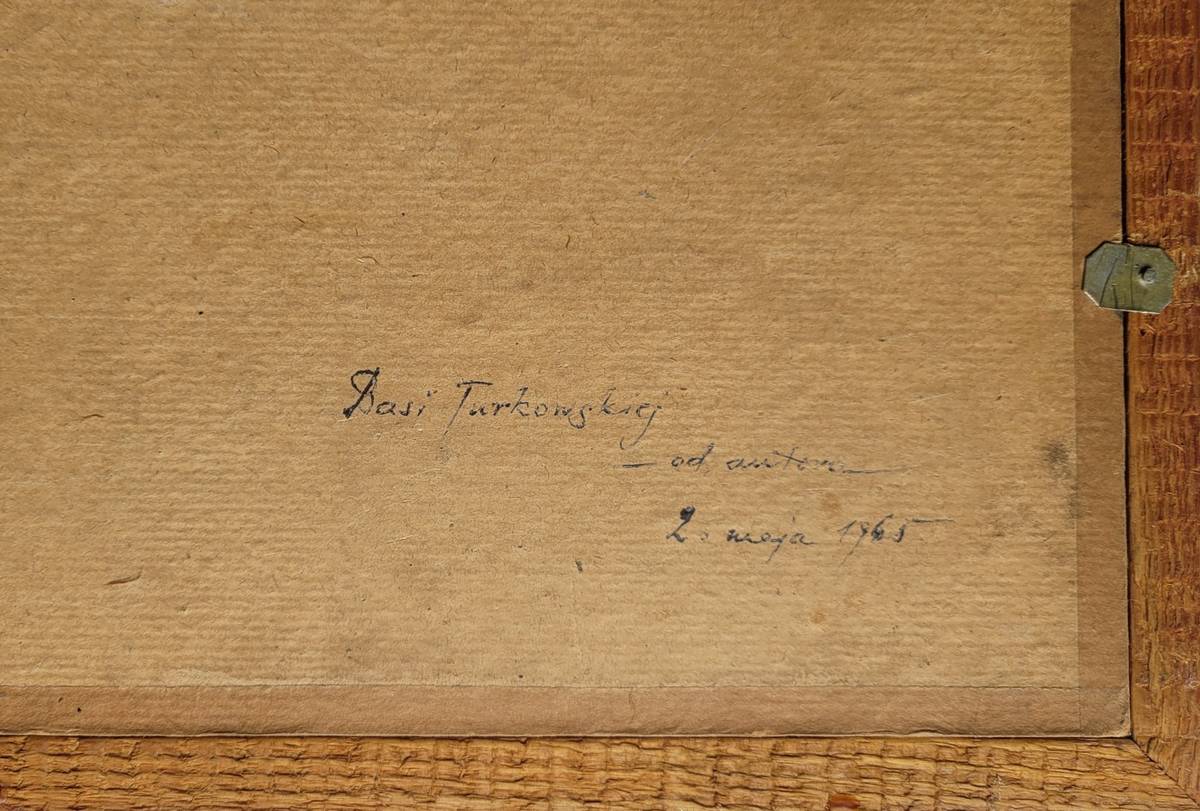 Basi Turkowskiej
— od autora
2. maja 1965